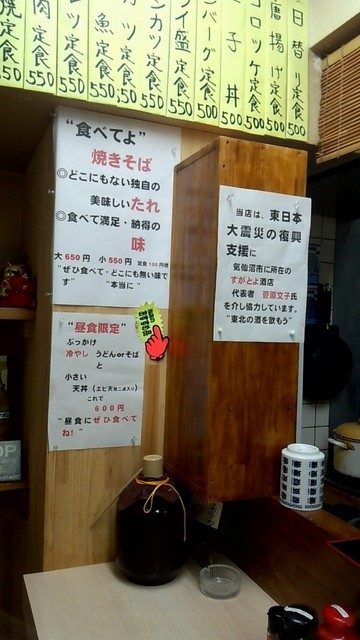 日替り定食 500
唐揚げ定食 500
コロッケ定食 500
子丼 500
ンバーグ定食 500
イ盛定食 550
ンカツ定食 550
カツ定食 550
魚定食 550
ンツ定食 550
肉定食 550
焼定食 550
“食べてよ”
焼きそば
◎どこにもない独自の
美味しいたれ
◎食べて満足・納得の
味
大650円 小550円 定食100円増
“ぜひ食べて・どこにも無い味です
“本当に”
“昼食限定”
ぶっかけ
冷やし うどんorそば
と
小さい
天丼(エビ天も二点入り)
これで
600円
“昼食にぜひ食べてね!”
当店は、東日本
大震災の復興
支援に
気仙沼市に所在の
すがとよ酒店
代表者 菅原文子氏
を介し協力しています。
“東北の酒を飲もう”